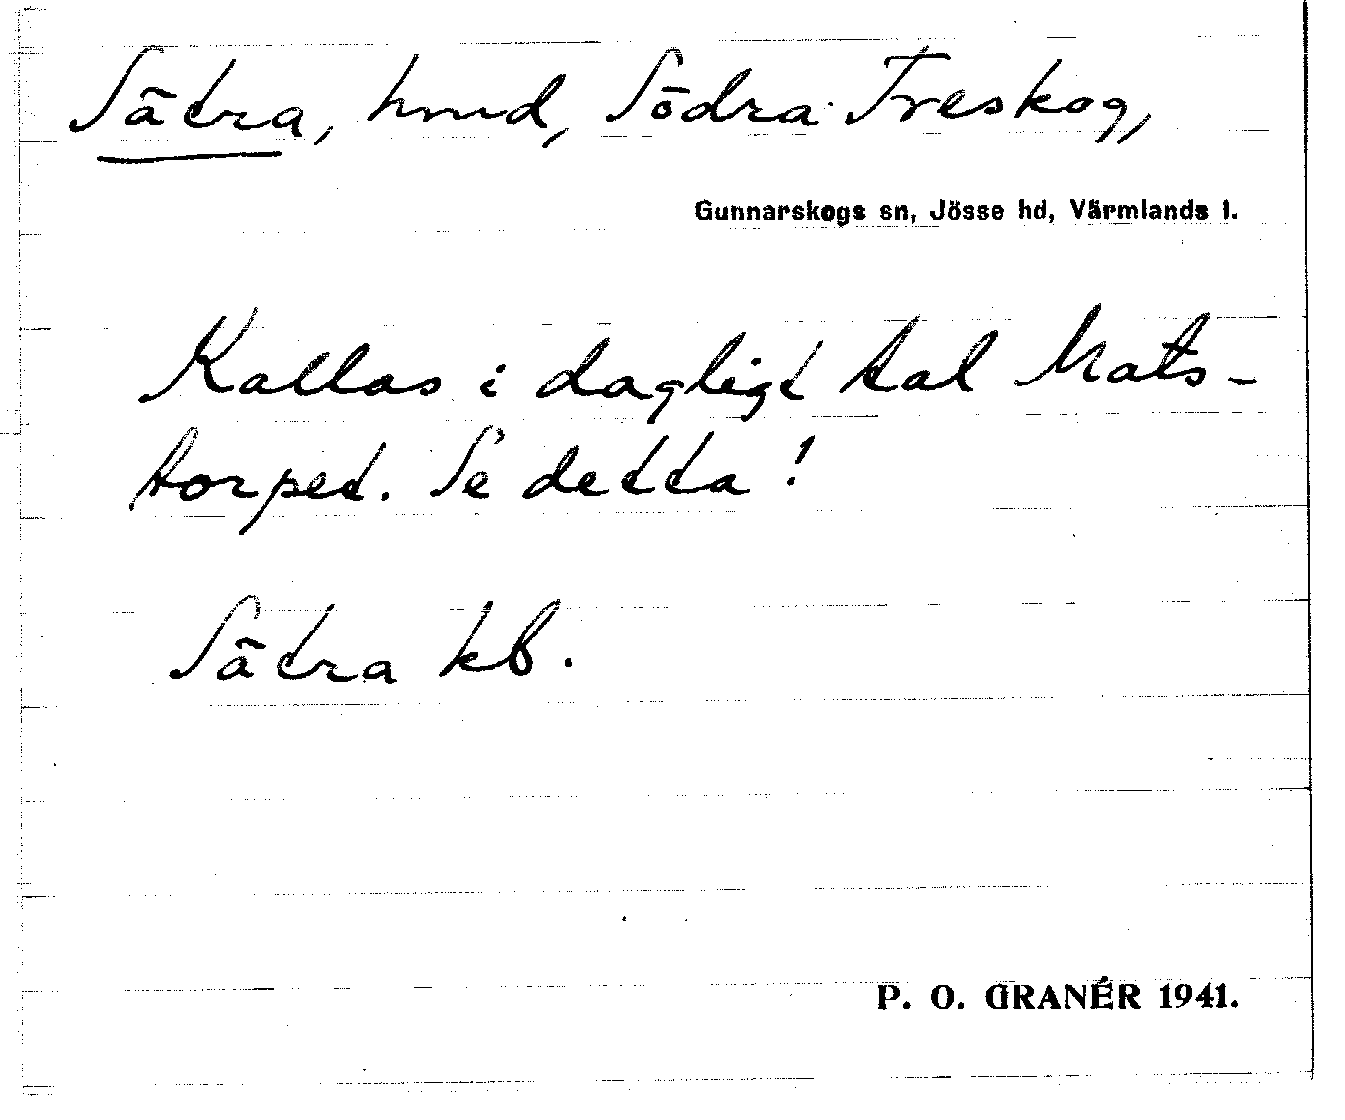 Sätra, hmd, Södra Treskog,
Gunnarskogs sn, Jösse hd, Värmlands l.
Kallas i dagligt tal Mats-
torpet. Se detta!
Sätra kb.
P. O. GRANÉR 1941.